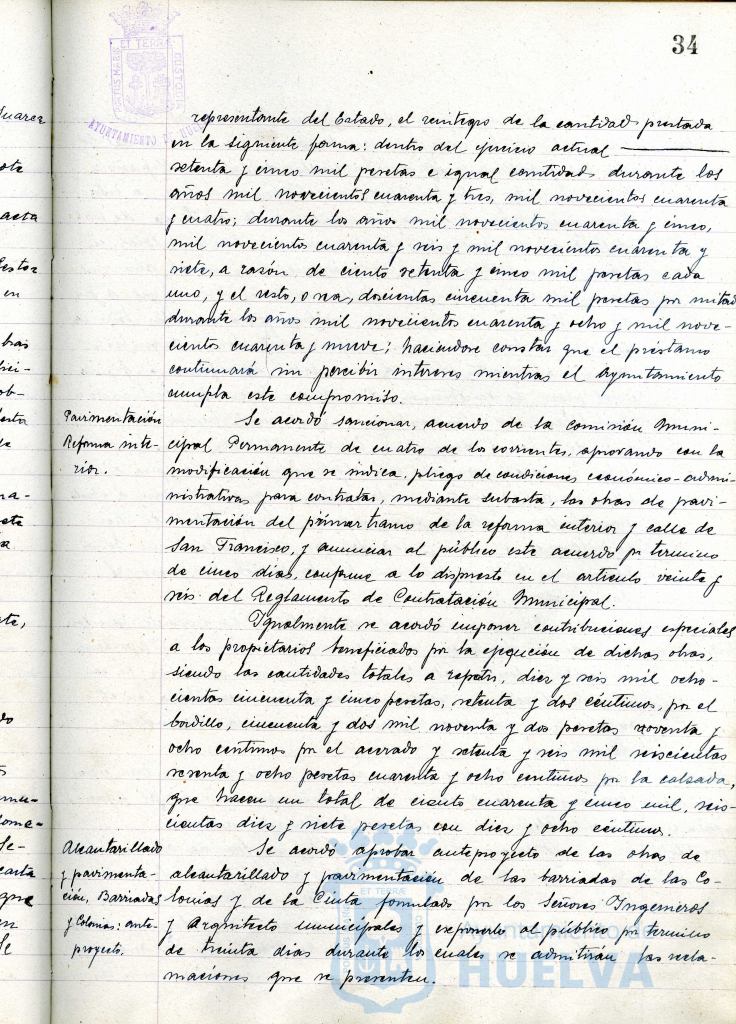 34
PORTUS MARIS ET TERRAE CUSTODIA
AYUNTAMIENTO DE HUELVA
representante del Estado, el reintegro de la cantidad prestada
en la siguiente forma: dentro del ejercicio actual
setenta y cinco mil pesetas e igual cantidad durante los
años mil novecientos cuarenta y tres, mil novecientos cuarenta
y cuatro; durante los años mil novecientos cuarenta y cinco,
mil novecientos cuarenta y seis y mil novecientos cuarenta y
siete, a razón de ciento setenta y cinco mil pesetas cada
uno, y el resto, o sea, doscientas cincuenta mil pesetas por mitad
durante los años mil novecientos cuarenta y ocho y mil nove-
cientos cuarenta y nueve; haciendose constar que el préstamo
continuará sin percibir intereses mientras el Ayuntamiento
cumpla este compromiso.
Pavimentación
Reforma inte-
rior.
Se acordó sancionar, acuerdo de la comisión Muni-
cipal Permanente de cuatro de los corrientes, aprovando con la
modificación que se indica, pliego de condiciones económico-admi-
nistrativas para contratar, mediante subasta, las obras de pavi-
mentación del primer tramo de la reforma interior y calle de
San Francisco, y anunciar al público este acuerdo por termino
de cinco dias, conforme a lo dispuesto en el articulo veinte y
seis del Reglamento de Contratación Municipal.
Igualmente se acordó imponer contribuciones especiales
a los propietarios beneficiados por la ejecución de dichas obras,
siendo las cantidades totales a repartir, diez y seis mil ocho-
cientas cincuenta y cinco pesetas, setenta y dos céntimos, por el
bordillo, cincuenta y dos mil noventa y dos pesetas noventa y
ocho centimos por el acerado y setenta y seis mil seiscientas
sesenta y ocho pesetas cuarenta y ocho centimos por la calzada,
que hacen un total de ciento cuarenta y cinco mil, seis-
cientas diez y siete pesetas con diez y ocho céntimos.
Alcantarillado
y pavimenta-
ción, Barriadas
y Colonias: ante-
proyecto.
Se acordó aprobar anteproyecto de las obras de
alcantarillado y pavimentación de las barriadas de las Co-
lonias y de la Cinta formulado por los Señores Ingenieros
y Arquitecto municipales y exponerlo al público por termino
de treinta dias durante los cuales se admitirán las recla-
maciones que se presenten.
Ayuntamiento de
HUELVA